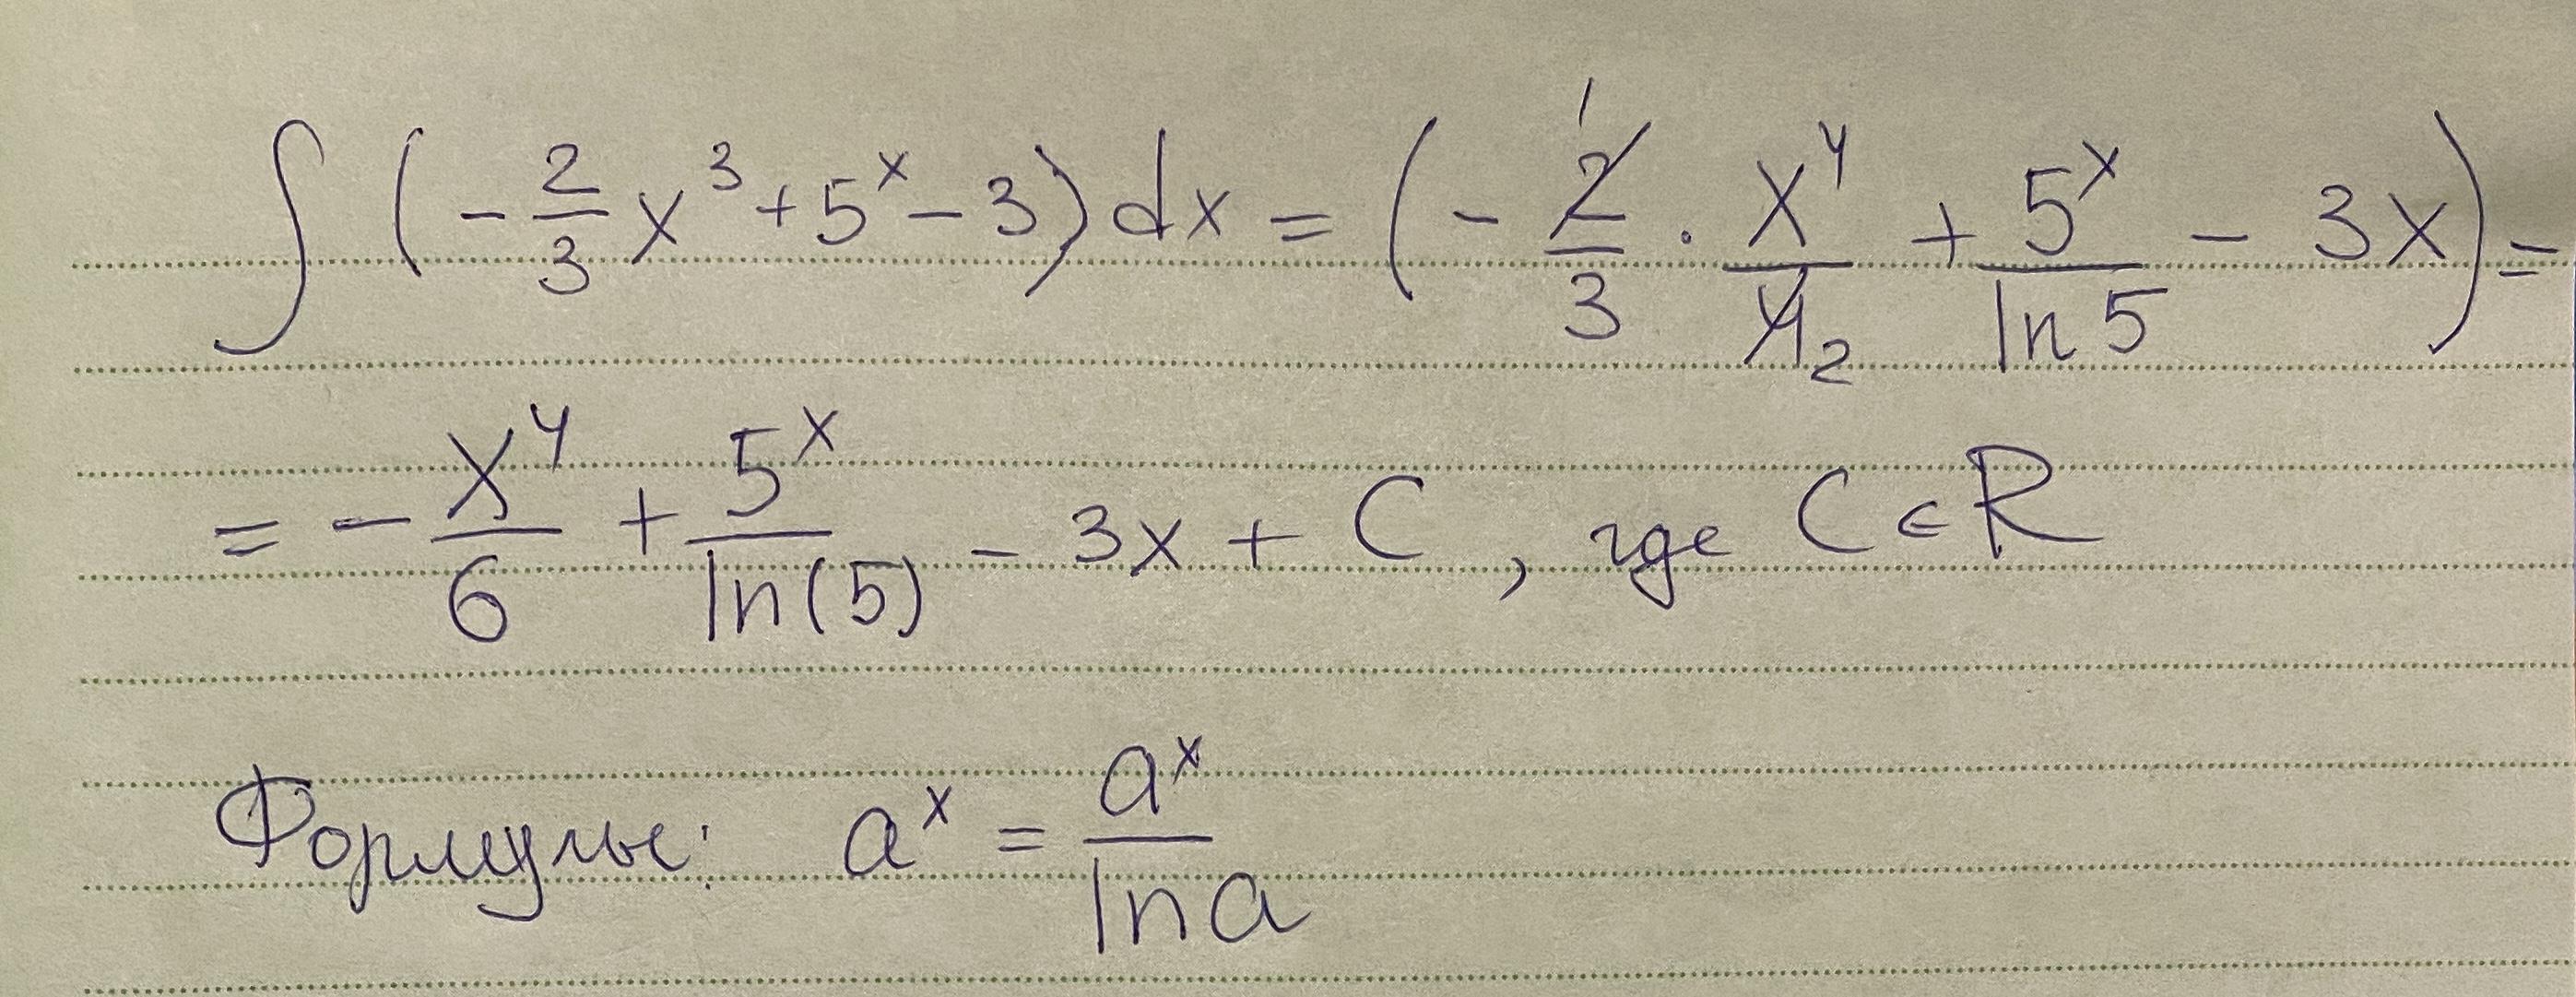 ∫ (-2/3 x³ + 5ˣ - 3) dx = (-2/3 · x⁴/4 + 5ˣ/ln 5 - 3x) =
= - x⁴/6 + 5ˣ/ln(5) - 3x + C, где C ∈ R
Формулы: aˣ = aˣ/ln a